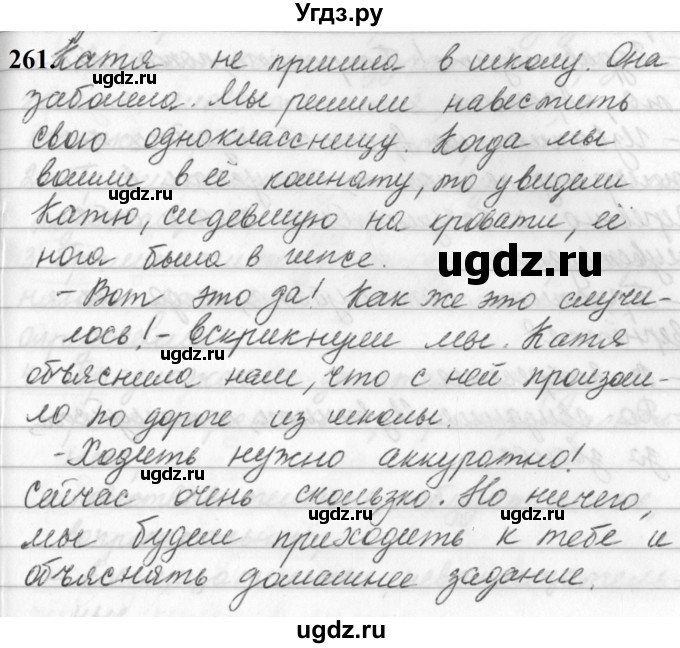 Угдз.ру
261. Катя не пришла в школу. Она
заболела. Мы решили навестить
свою одноклассницу. Когда мы
вошли в её комнату, то увидели
Катю, сидевшую на кровати, её
нога была в гипсе.
ugdz.ru
- Вот это да! Как же это случи-
ugdz.ru
лось! - вскрикнули мы. Катя
ugdz.ru
объяснила нам, что с ней произош-
ло по дороге из школы.
- Ходить нужно аккуратно!
ugdz.ru
Сейчас очень скользко. Но ничего,
ugdz.ru
ugdz.ru
мы будем приходить к тебе и
объяснять домашнее задание.
ugdz.ru